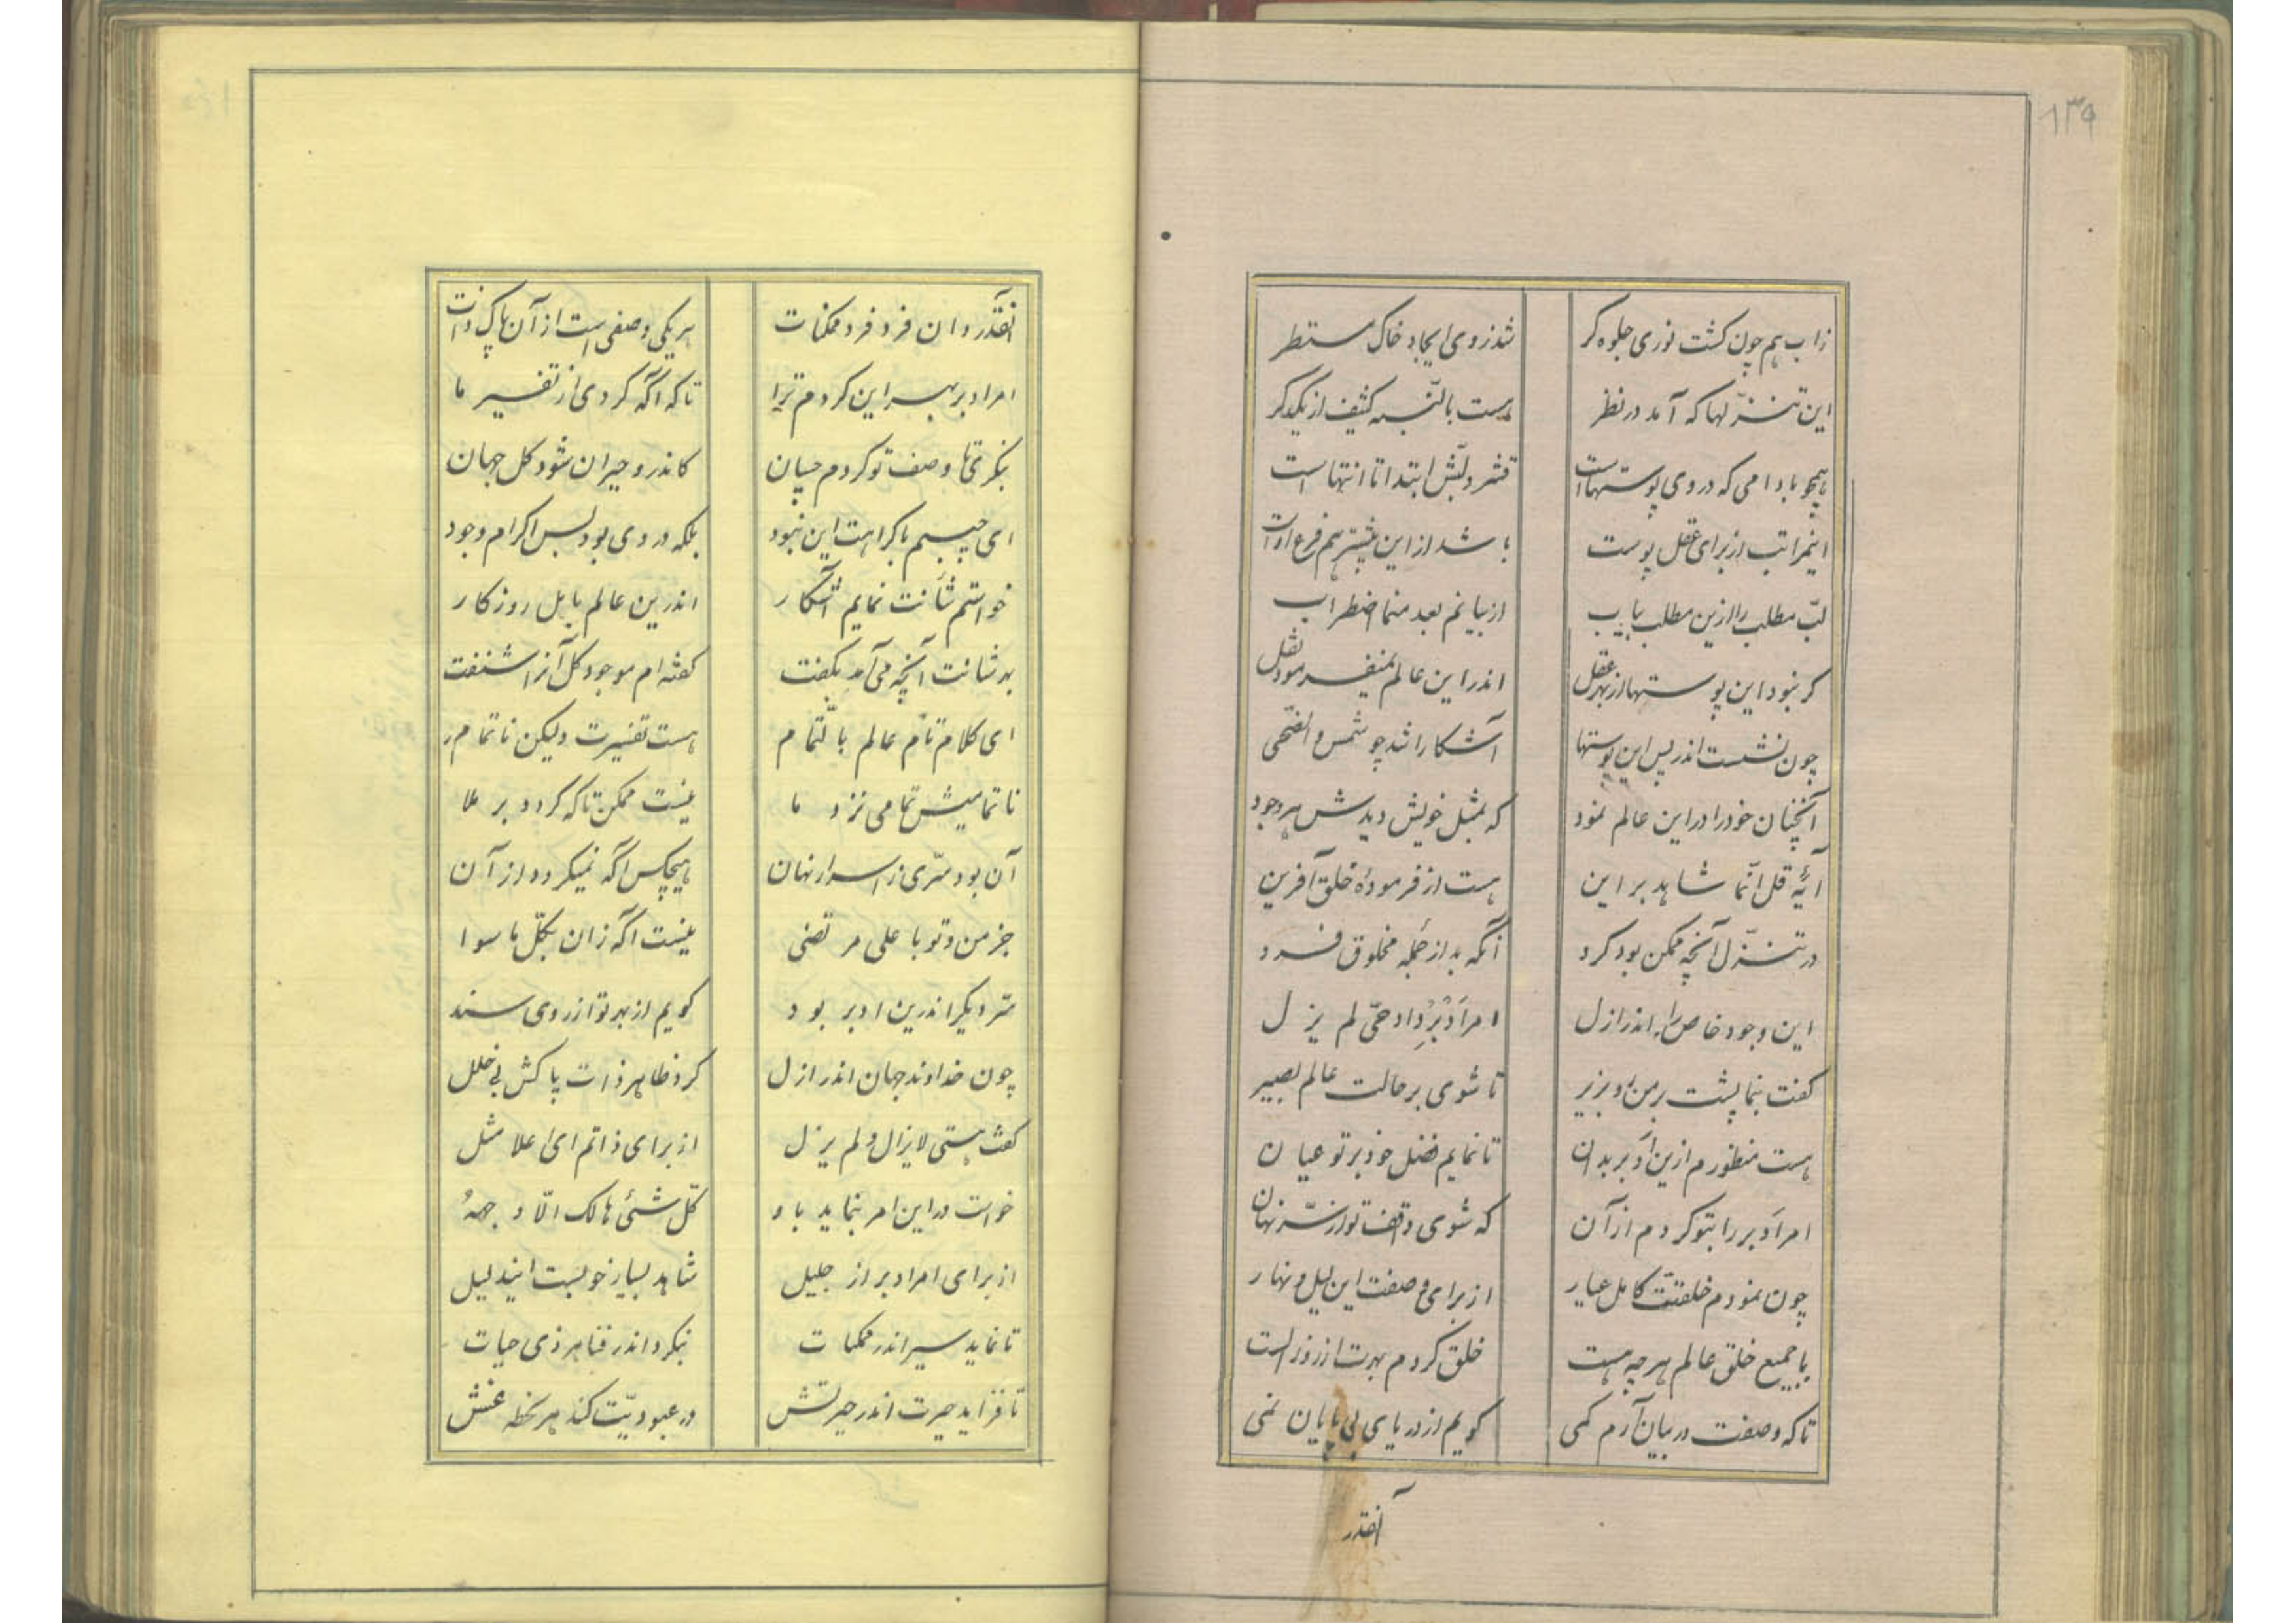 ۱۳۹
زاب هم چون کشت نوری جلوه کر
شد ز روی ایجاد خاک مستطر
این تنزّلها که آمد در نظر
هست بالنّسبه کثیف از یکدکر
همچو بادامی که در وی پوستهاست
قشر و لبّش ابتدا تا انتهاست
اینمراتب از برای عقل پوست
باشد از این بیشتر هم فرع اوست
لبّ مطلب را ازین مطلب بیاب
از بیانم بعد منما اضطراب
کر نبود این پوستها از بهر عقل
اندر این عالم نمیفرمود نقل
چون نشست اندر پس این پوستها
آشکارا شد چو شمس و الضّحی
آنچنان خود را در این عالم نمود
که بمثل خویش دیدش هر وجود
آیهٔ قل انّما شاهد بر این
هست از فرمودهٔ خلق آفرین
در تنزّل آنچه ممکن بود کرد
آنکه بد از جمله مخلوق فرد
این وجود خاص را اندر ازل
امر اَدْبِرْ داد حیّ لم یزل
کفت بنما پشت بر من رو بزیر
تا شوی بر حالت عالم بصیر
هست منظورم ازین اَدبر بدان
تا نمایم فضل خود بر تو عیان
امر اَدبر را بتو کردم از آن
که شوی واقف تو از سرّ نهان
چون نمودم خلقتت کامل عیار
از برای وصفت این لیل و نهار
با جمیع خلق عالم هر چه هست
خلق کردم بهرت از روز الست
تا که وصفت در بیان آرم کمی
کویم از دریای بی پایان نمی
آنقدر
آنقدر دان فرد فرد ممکنات
هر یکی وصفی است از آن پاک ذات
امر ادبر بهر این کردم ترا
تا که آکه کردی از تفسیر ما
بنکری تا وصف تو کردم چسان
کاندرو حیران شود کل جهان
ای حبیبم با کراهت این نبود
بلکه در وی بود بس اکرام وجود
خواستم شأنت نمایم آشکار
اندرین عالم باهل روزکار
بهر شانت آنچه می آمد بکفت
کفته ام موجود کل آنرا شنفت
ای کلام تام عالم بالتّمام
هست تفسیرت ولیکن ناتمام
ناتمامیش تمامی نزد ما
نیست ممکن تا که کردد بر ملا
آن بود سرّی ز اسرار نهان
هیچکس آکه نمیکردد از آن
جز من و تو با علی مرتضی
نیست آکه زان بکلّ ما سوا
سّر دیکر اندرین ادبر بود
کویم از بهر تو از روی سند
چون خداوند جهان اندر ازل
کرد ظاهر ذات پاکش بی خلل
کفت هستی لایزال و لم یزل
از برای ذاتم ای اعلا مثل
خواست در این امر بنماید باو
کلّ شئی هالک الّا وجههُ
از برای امر ادبر از جلیل
شاهد بسیار خوبست ایندلیل
تا نماید سیر اندر ممکنات
نبکرد اندر فنا هر ذی حیات
تا فزاید حیرت اندر حیرتش
در عبودیّت کند هر لحظه غش